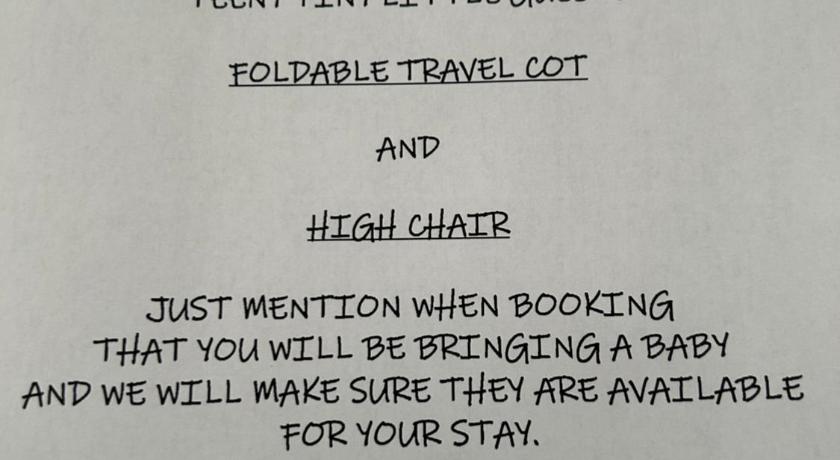 FOLDABLE TRAVEL COT
AND
HIGH CHAIR
JUST MENTION WHEN BOOKING
THAT YOU WILL BE BRINGING A BABY
AND WE WILL MAKE SURE THEY ARE AVAILABLE
FOR YOUR STAY.